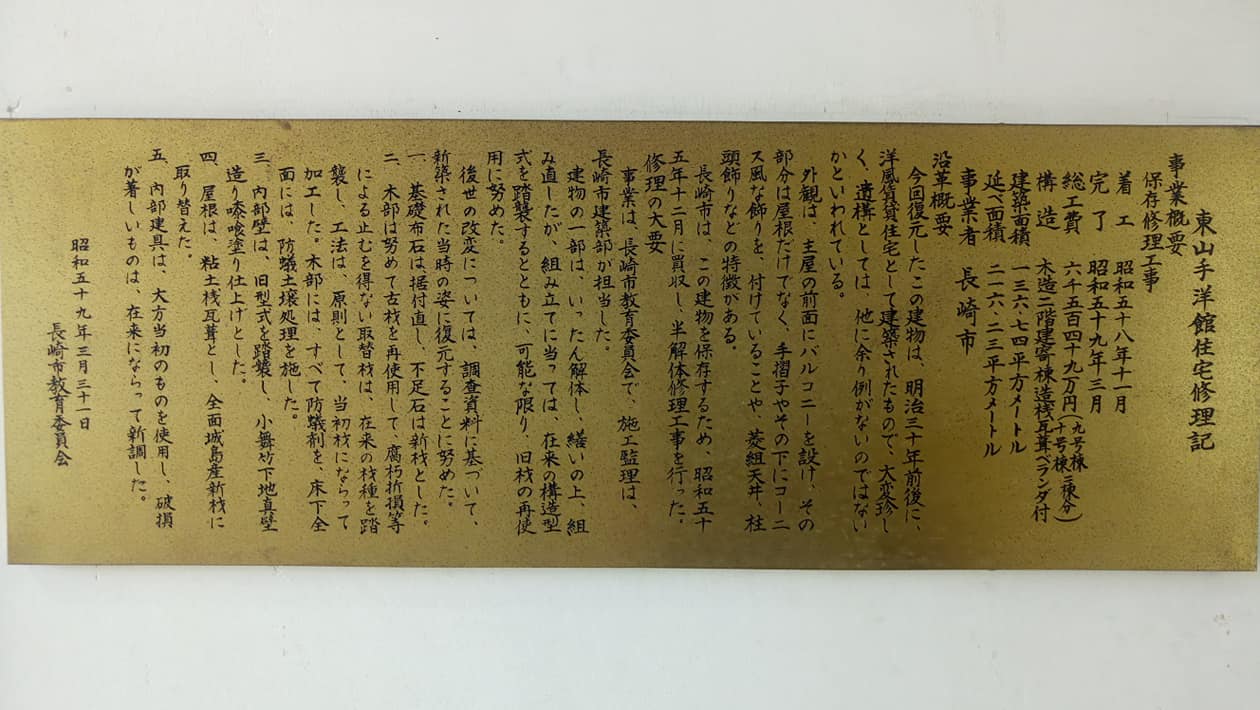 東山手洋館住宅修理記
事業概要
保存修理工事
着工 昭和五十八年十一月
完了 昭和五十九年三月
総工費 六千五百四十九万円(九号棟十号棟二棟分)
構造 木造二階建寄棟造桟瓦葺ベランダ付
建築面積 一三六・七四平方メートル
延べ面積 二一六・二三平方メートル
事業者 長崎市
沿革概要
今回復元したこの建物は、明治三十年前後に、
洋風賃貸住宅として建築されたもので、大変珍し
く、遺構としては、他に余り例がないのではない
かといわれている。
外観は、主屋の前面にバルコニーを設け、その
部分は屋根だけでなく、手摺子やその下にコーニ
ス風な飾りを、付けていることや、菱組天井、柱
頭飾りなどの特徴がある。
長崎市は、この建物を保存するため、昭和五十
五年十二月に買収し、半解体修理工事を行った。
修理の大要
事業は、長崎市教育委員会で、施工監理は、
長崎市建築部が担当した。
建物の一部は、いったん解体し、繕いの上、組
み直したが、組み立てに当っては、在来の構造型
式を踏襲するとともに、可能な限り、旧材の再使
用に努めた。
後世の改変については、調査資料に基づいて、
新築された当時の姿に復元することに努めた。
一、基礎布石は据付直し、不足石は新材とした。
二、木部は努めて古材を再使用して、腐朽折損等
による止むを得ない取替材は、在来の材種を踏
襲し、工法は、原則として、当初材にならって
加工した。木部には、すべて防蟻剤を、床下全
面には、防蟻土壌処理を施した。
三、内部壁は、旧型式を踏襲し、小舞竹下地真壁
造り漆喰塗り仕上げとした。
四、屋根は、粘土桟瓦葺とし、全面城島産新材に
取り替えた。
五、内部建具は、大方当初のものを使用し、破損
が著しいものは、在来にならって新調した。
昭和五十九年三月三十一日
長崎市教育委員会